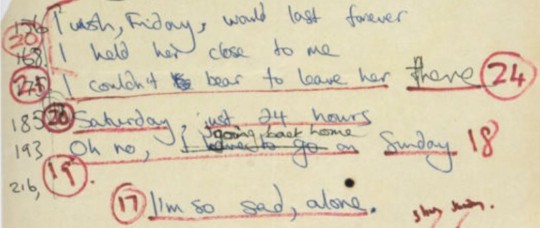 136 I wish, Friday, would last forever
20
168. I held her close to me
25 I couldn't bear to leave her there 24
185 20 Saturday, just 24 hours
going back home
193 Oh no, I to go on Sunday 18
19.
216,
17 I'm so sad, alone.